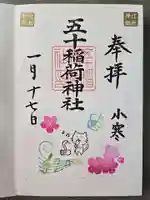 奉拝
小寒
五十稲荷神社
一月十七日